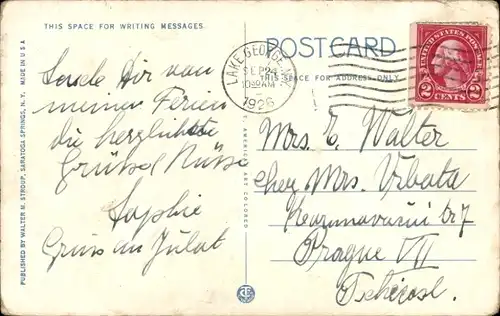 THIS SPACE FOR WRITING MESSAGES.
MADE IN U.S.A
PUBLISHED BY WALTER M. STROUP, SARATOGA SPRINGS, N. Y.
Sende Dir von
meinen Ferien
die herzlichste
Grüsse Küsse
Sophie
Gruss an
AMERICAN ART COLORED
POSTCARD
THIS SPACE FOR ADDRESS ONLY.
LAKE GEORGE
SEP 24
10 30 AM
1926
UNITED STATES POSTAGE
2 CENTS 2
Mrs. E. Walter
chez Mrs. Urbata
Prague VII